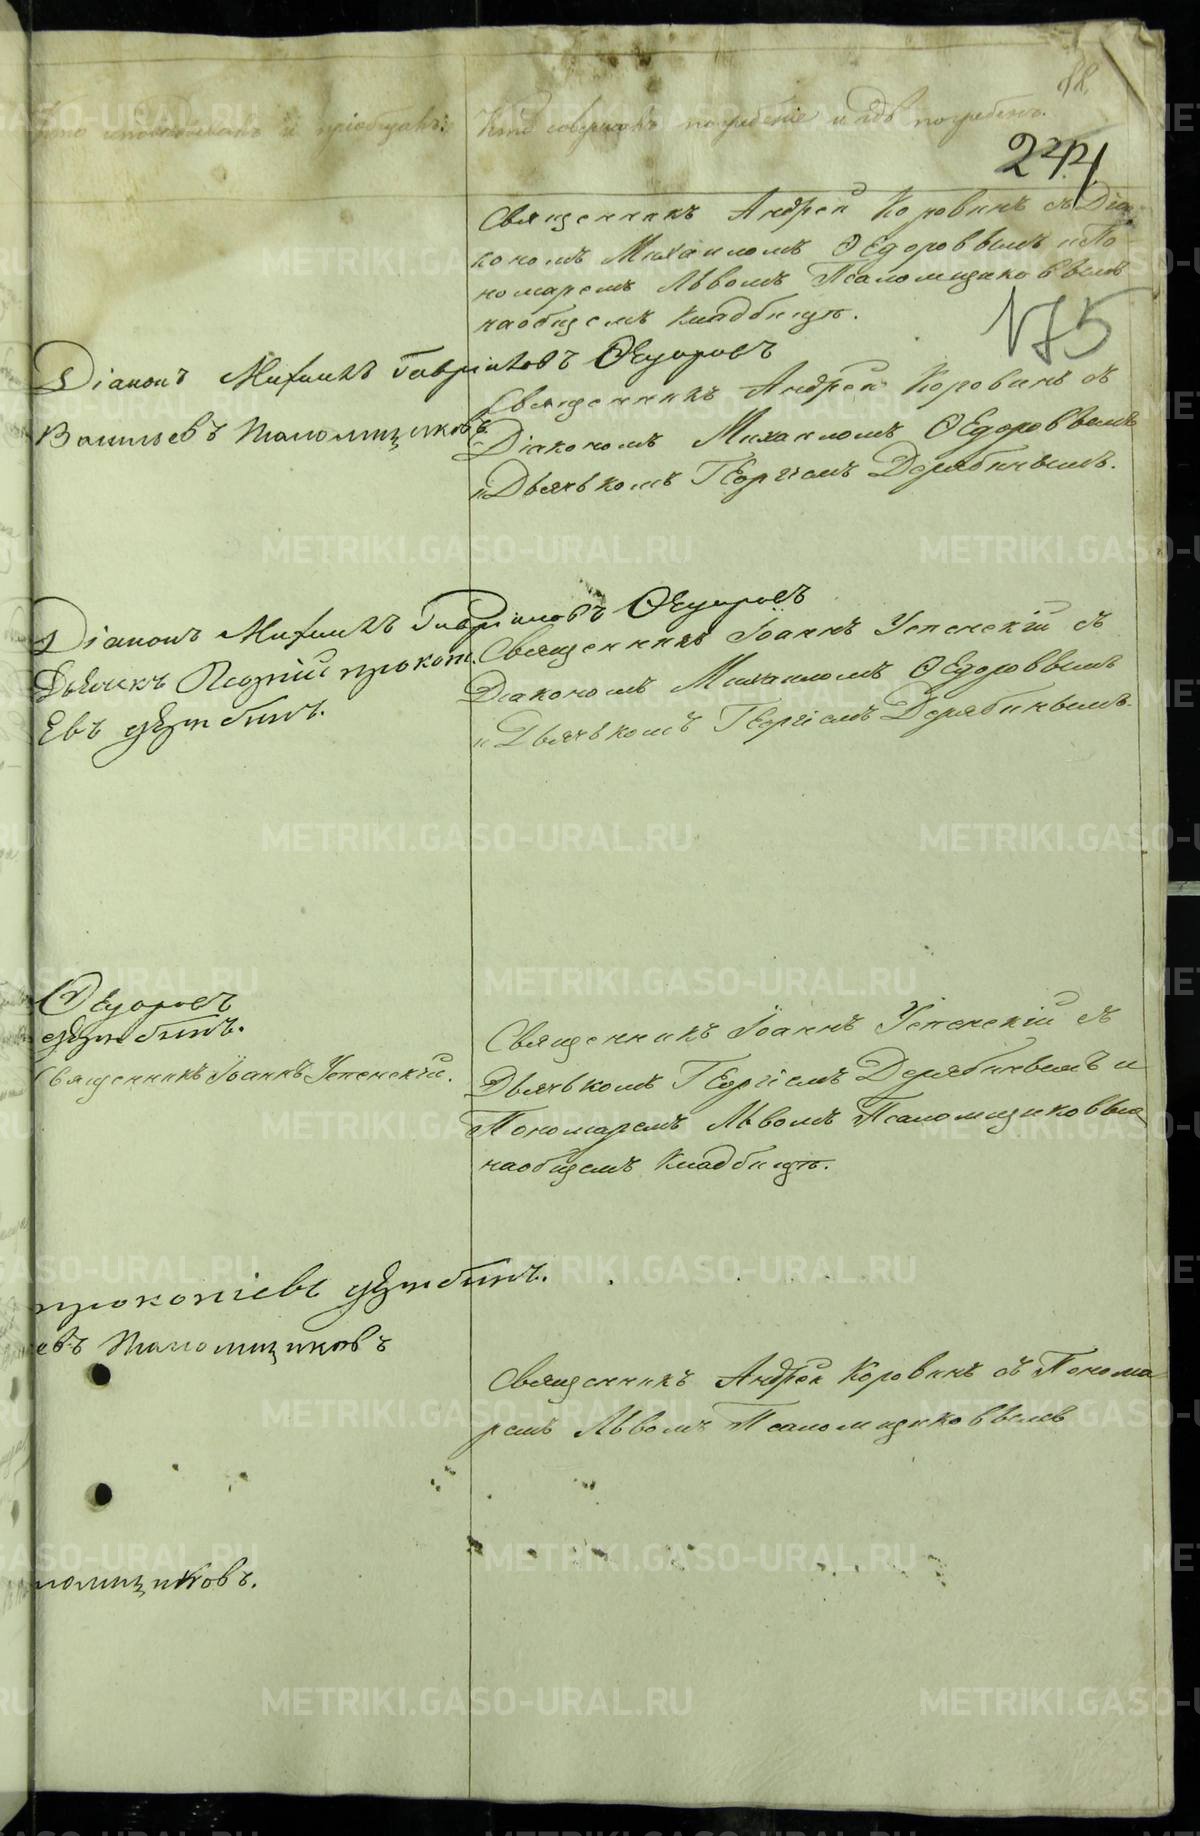 88.
Кто исповедывалъ и пріобщалъ:
Кто совершалъ погребеніе и гдѣ погребенъ.
244
Священникъ Андрей Коровинъ съ Діа-
кономъ Михаиломъ Ѳедоровымъ и По-
номаремъ Львомъ Псаломщиковымъ
на общемъ кладбищѣ.
175
Діаконъ Михаилъ Гавріиловъ Ѳедоровъ
Васильевъ Псаломщиковъ
Священникъ Андрей Коровинъ съ
Діакономъ Михаиломъ Ѳедоровымъ
и Дьячькомъ Георгіемъ Дерябинымъ.
Діаконъ Михаилъ Гавріиловъ Ѳедоровъ
Дьячекъ Георгій Прокопі
евъ Дерябинъ.
Священникъ Іоаннъ Успенскій съ
Діакономъ Михаиломъ Ѳедоровымъ
и Дьячькомъ Георгіемъ Дерябинымъ.
Ѳедоровъ
Дерябинъ.
Священникъ Іоаннъ Успенскій.
Священникъ Іоаннъ Успенскій съ
Дьячькомъ Георгіемъ Дерябинымъ и
Пономаремъ Львомъ Псаломщиковым
на общемъ кладбищѣ.
Прокопіевъ Дерябинъ.
евъ Псаломщиковъ
Священникъ Андрей Коровинъ съ Понома
ремъ Львомъ Псаломщиковымъ
ломщиковъ.
METRIKI.GASO-URAL.RU